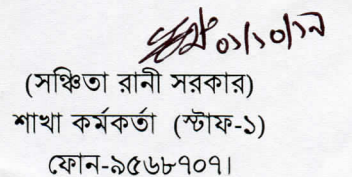 ০১/১০/১৯
(সঞ্চিতা রানী সরকার)
শাখা কর্মকর্তা (স্টাফ-১)
ফোন-৯৫৬৮৭০৭।